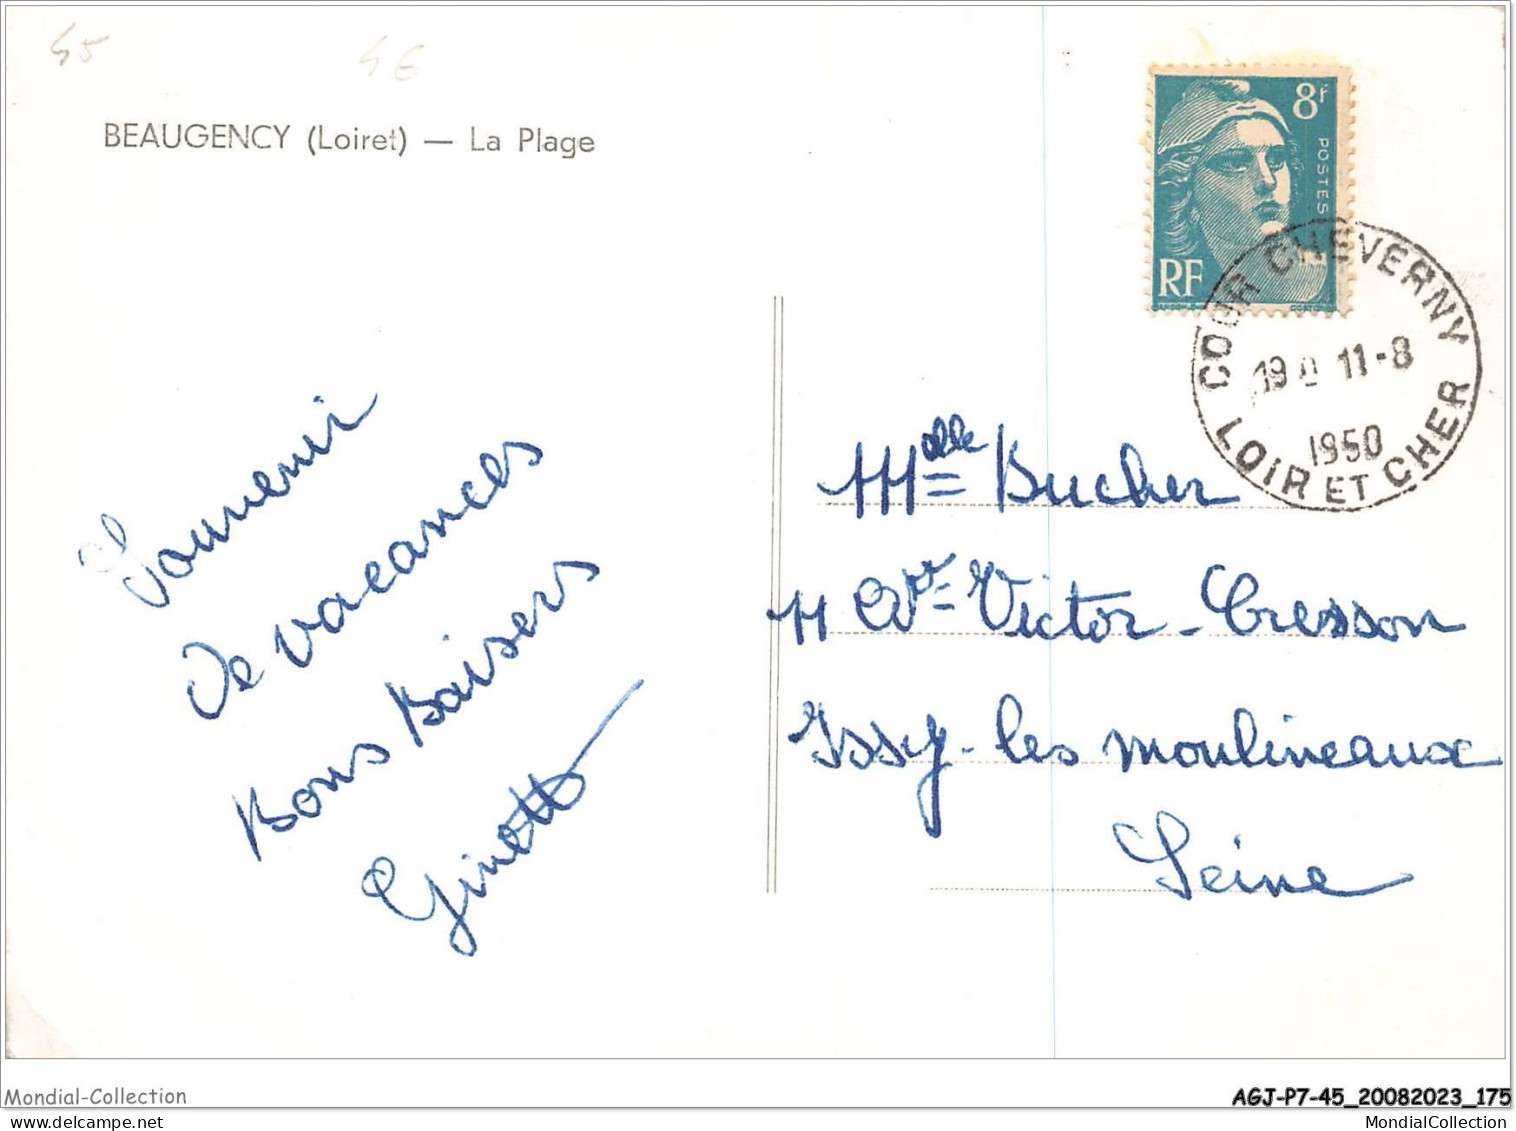 45
4€
BEAUGENCY (Loiret) — La Plage
8F
POSTES
RF
COUR CHEVERNY
11-8
1950
LOIR ET CHER
Souvenir
De vacances
Bons Baisers
Ginette
Melle Bucher
11 Ave Victor-Cresson
Issy-les moulineaux
Seine
Mondial-Collection
AGJ-P7-45_20082023_175
MondialCollection